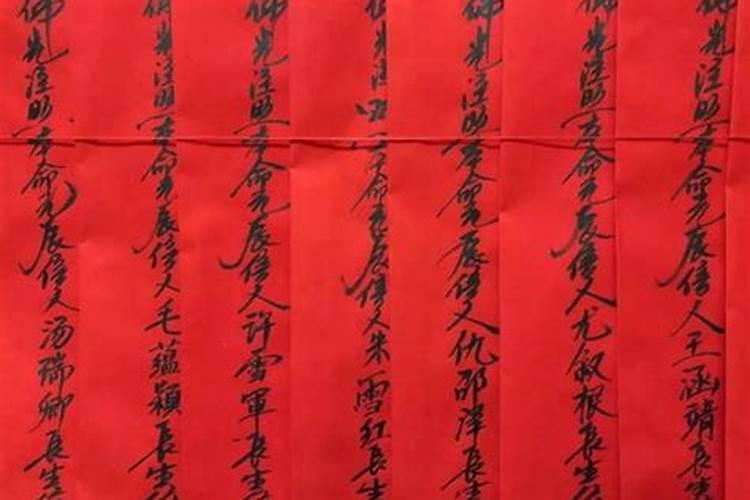 佛光注照本命元辰信人王涵靖長生
佛光注照本命元辰信人尤敘根長生
佛光注照本命元辰信人仇邵洋長生
佛光注照本命元辰信人朱雪红長生
佛光注照本命元辰信人许雪軍長生
佛光注照本命元辰信人毛蕴穎長生
佛光注照本命元辰信人汤瑞卿長生